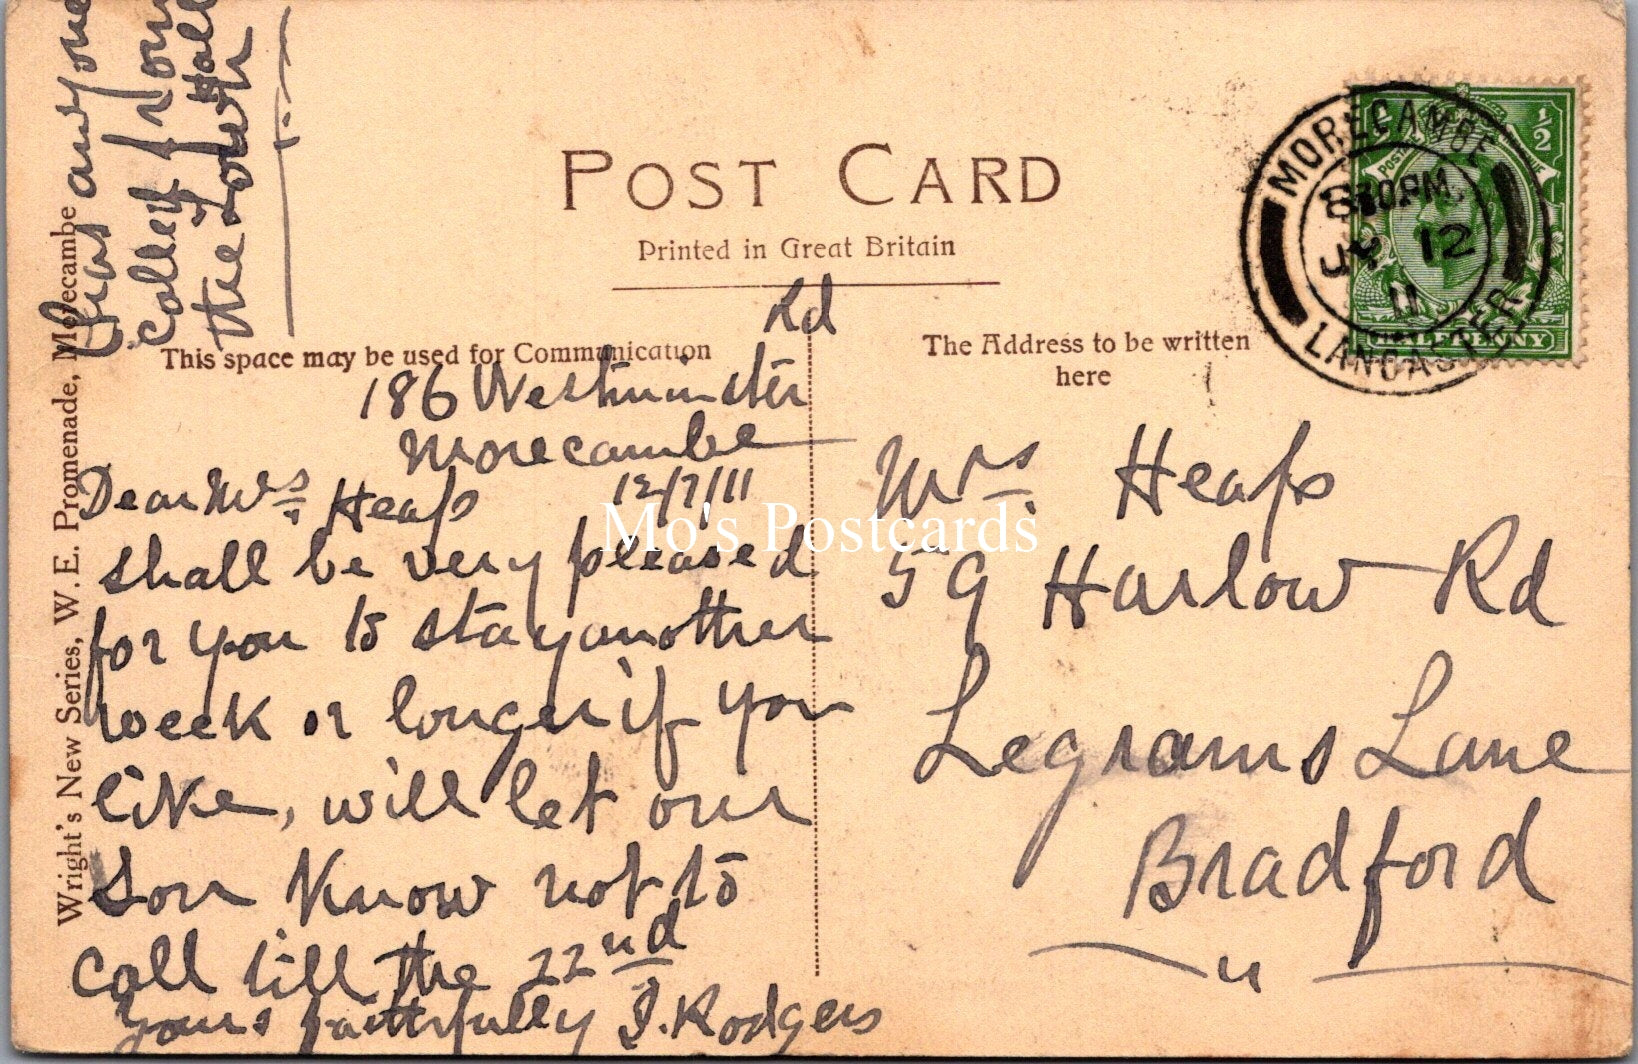 POST CARD
Printed in Great Britain
This space may be used for Communication
The Address to be written
here
Rd
186 Westminster
Morecambe
12/7/11
Dear Mrs Heaps
shall be very pleased
for you to stay another
week or longer if you
like, will let our
son know not to
call till the 22nd
yours faithfully J. Rodgers
Has anyone
called from
the Town
Hall
Mrs. Heaps
59 Harlow Rd
Legrams Lane
Bradford
MORECAMBE
8 30 PM
JY 12
11
LANCASTER
1/2
HALFPENNY
Wright's New Series, W. E. Promenade, Morecambe
Mo's Postcards